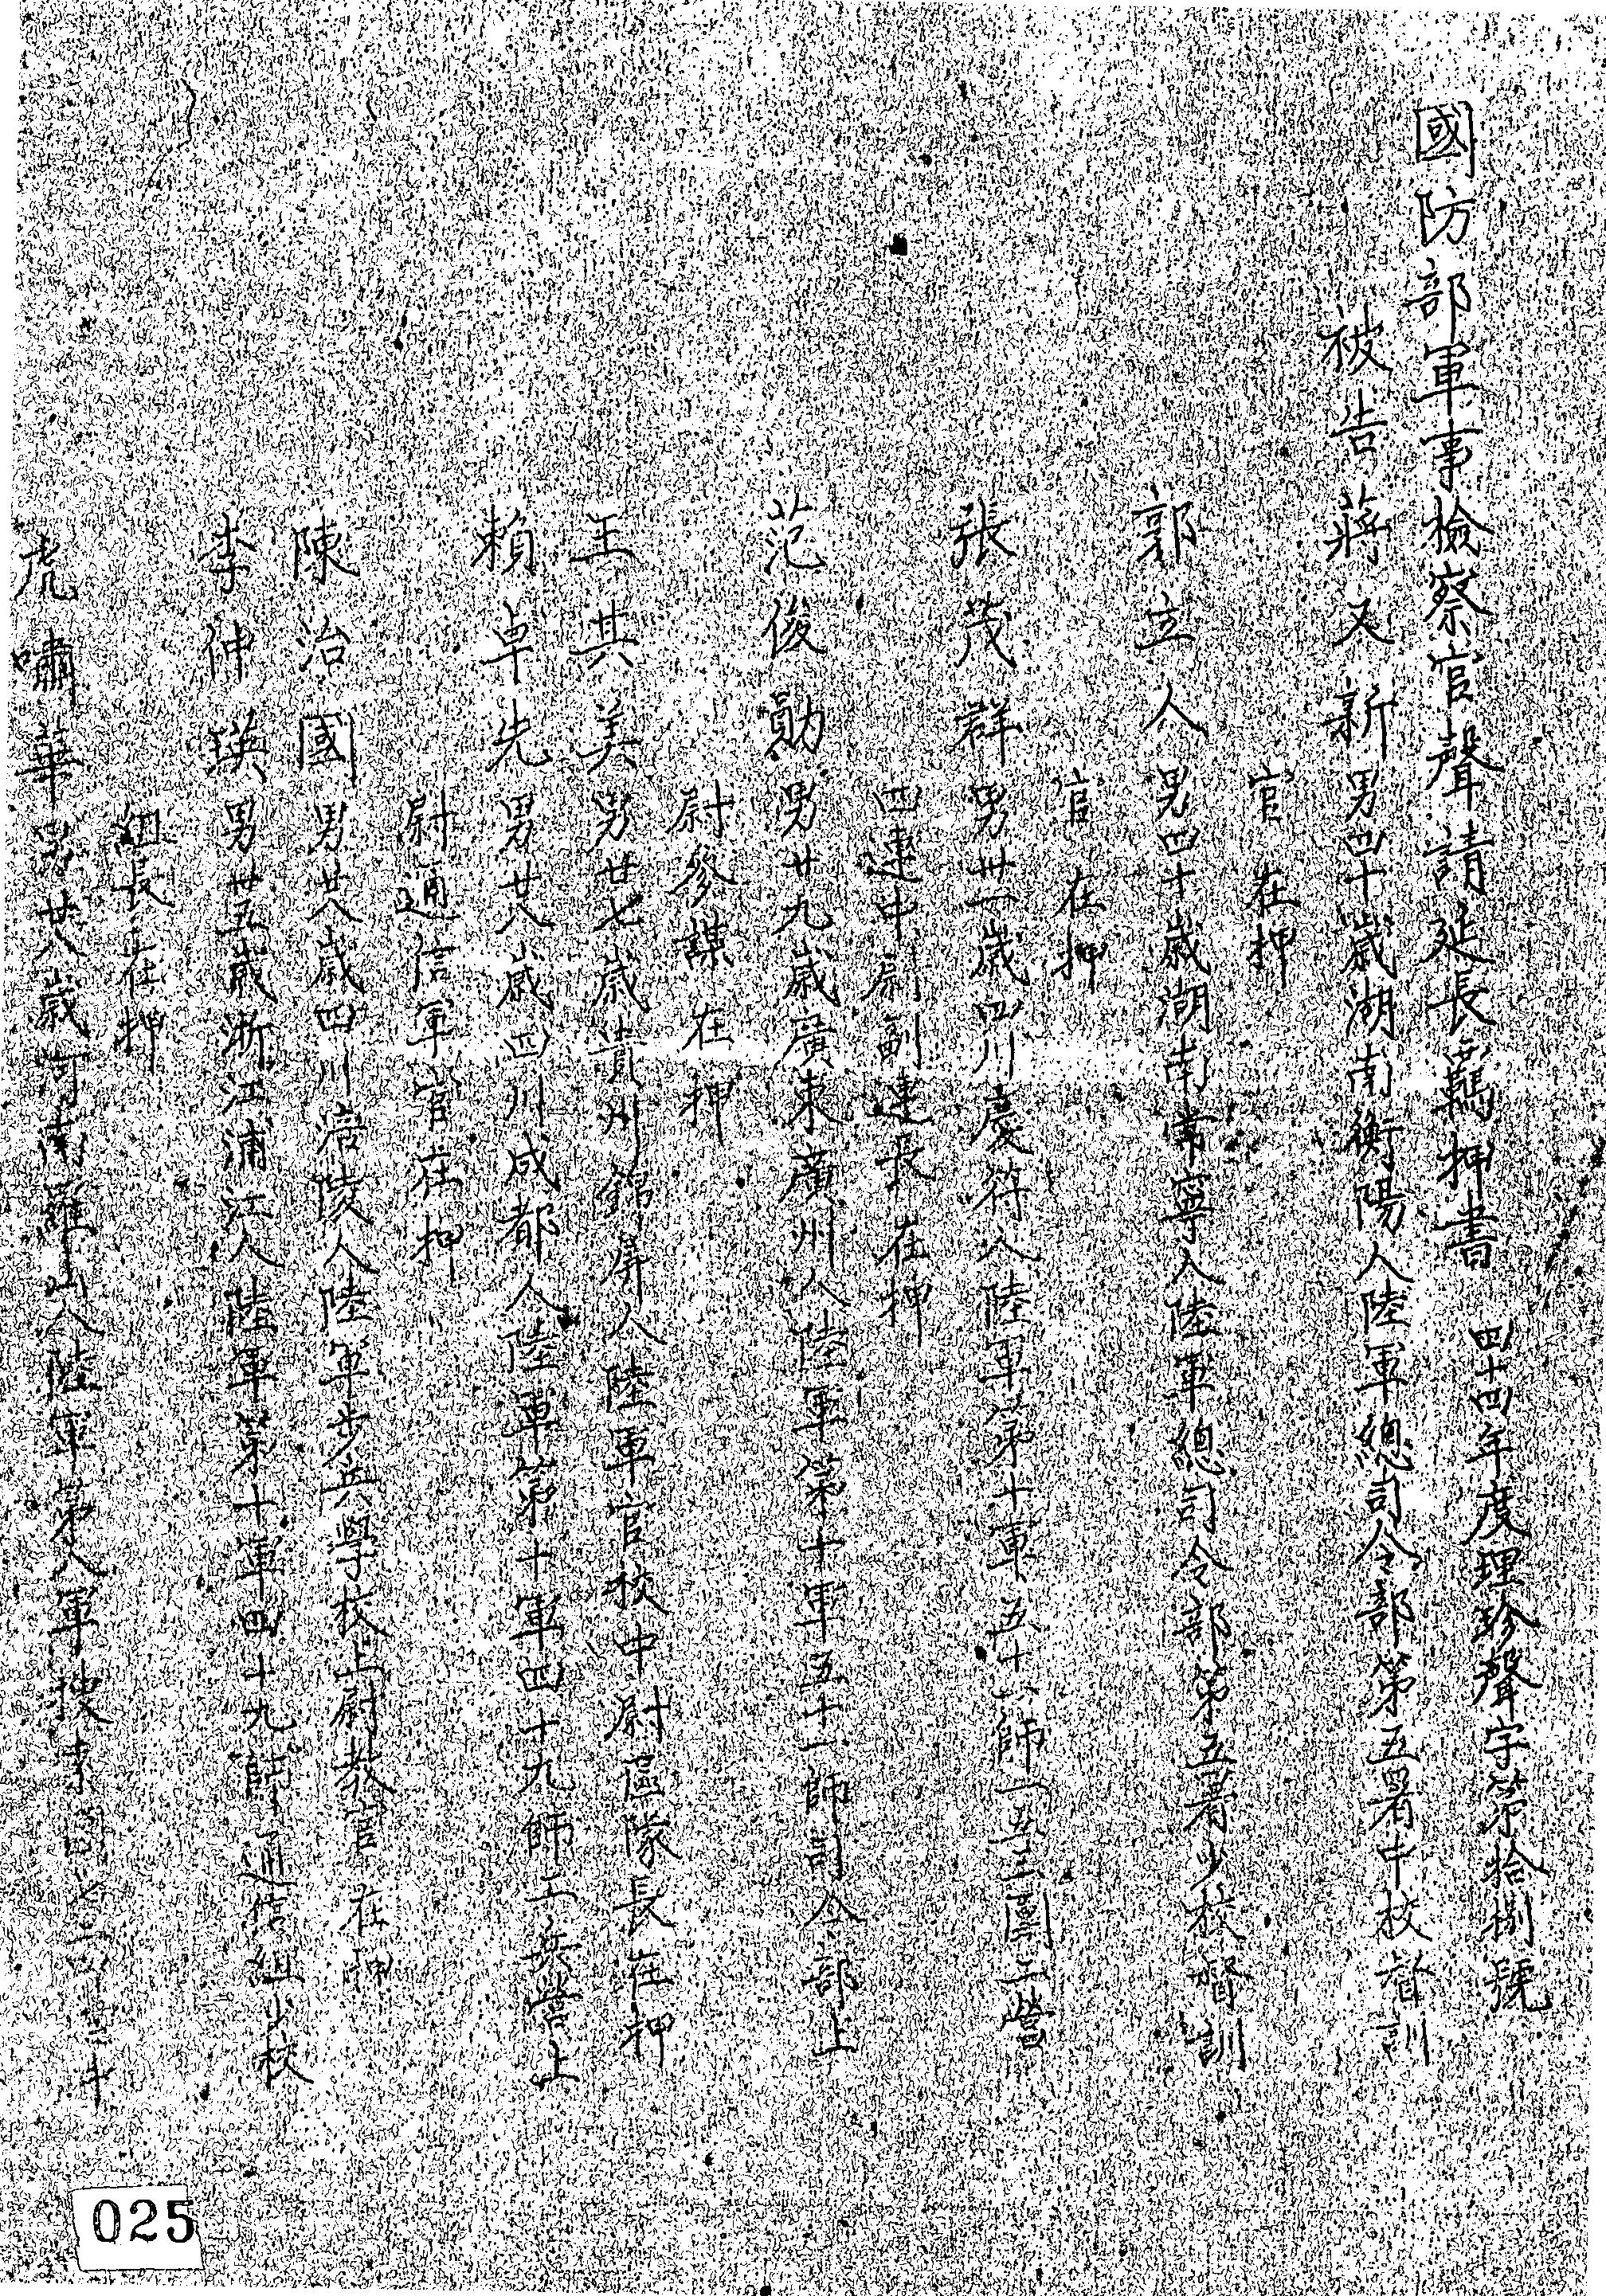 國防部軍事檢察官聲請延長羈押書 四十四年度理珍聲字第拾捌號
被告蔣又新男四十歲湖南衡陽人陸軍總司令部第五署中校督訓
官在押
郭立人男四十歲湖南常寧人陸軍總司令部第五署少校督訓
官在押
張茂群男卅一歲四川慶符人陸軍第十軍五十六師一五三團三營
四連中尉副連長在押
范俊勛男廿九歲廣東廣州人陸軍第十軍五十一師司令部上
尉參謀在押
王其美男廿七歲貴州錦屏人陸軍官校中尉區隊長在押
賴卓先男廿八歲四川成都人陸軍第十軍四十九師工兵營上
尉通信軍官在押
陳治國男廿八歲四川涪陵人陸軍步兵學校上尉教官在押
李仲瑛男卅五歲浙江浦江人陸軍第十軍四十九師通信組少校
組長在押
虎嘯華男廿八歲河南羅山人陸軍第八軍搜索團
025